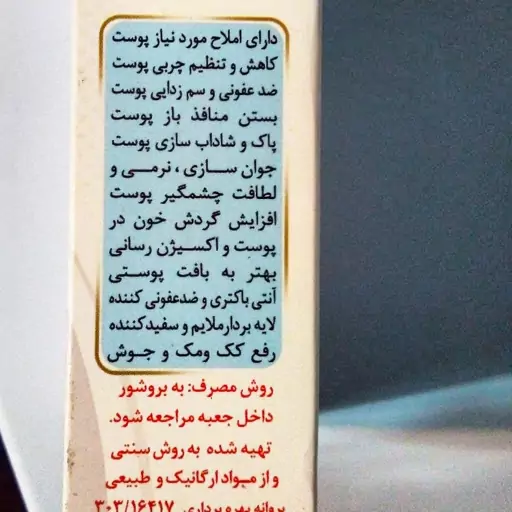 دارای املاح مورد نیاز پوست
کاهش و تنظیم چربی پوست
ضد عفونی و سم زدایی پوست
بستن منافذ باز پوست
پاک و شاداب سازی پوست
جوان سازی ، نرمی و
لطافت چشمگیر پوست
افزایش گردش خون در
پوست و اکسیژن رسانی
بهتر به بافت پوستی
آنتی باکتری و ضدعفونی کننده
لایه بردار ملایم و سفیدکننده
رفع کک ومک و جوش
روش مصرف: به بروشور
داخل جعبه مراجعه شود.
تهیه شده به روش سنتی
و از مواد ارگانیک و طبیعی
پروانه بهره برداری ۳۰۳/۱۶۴۱۷